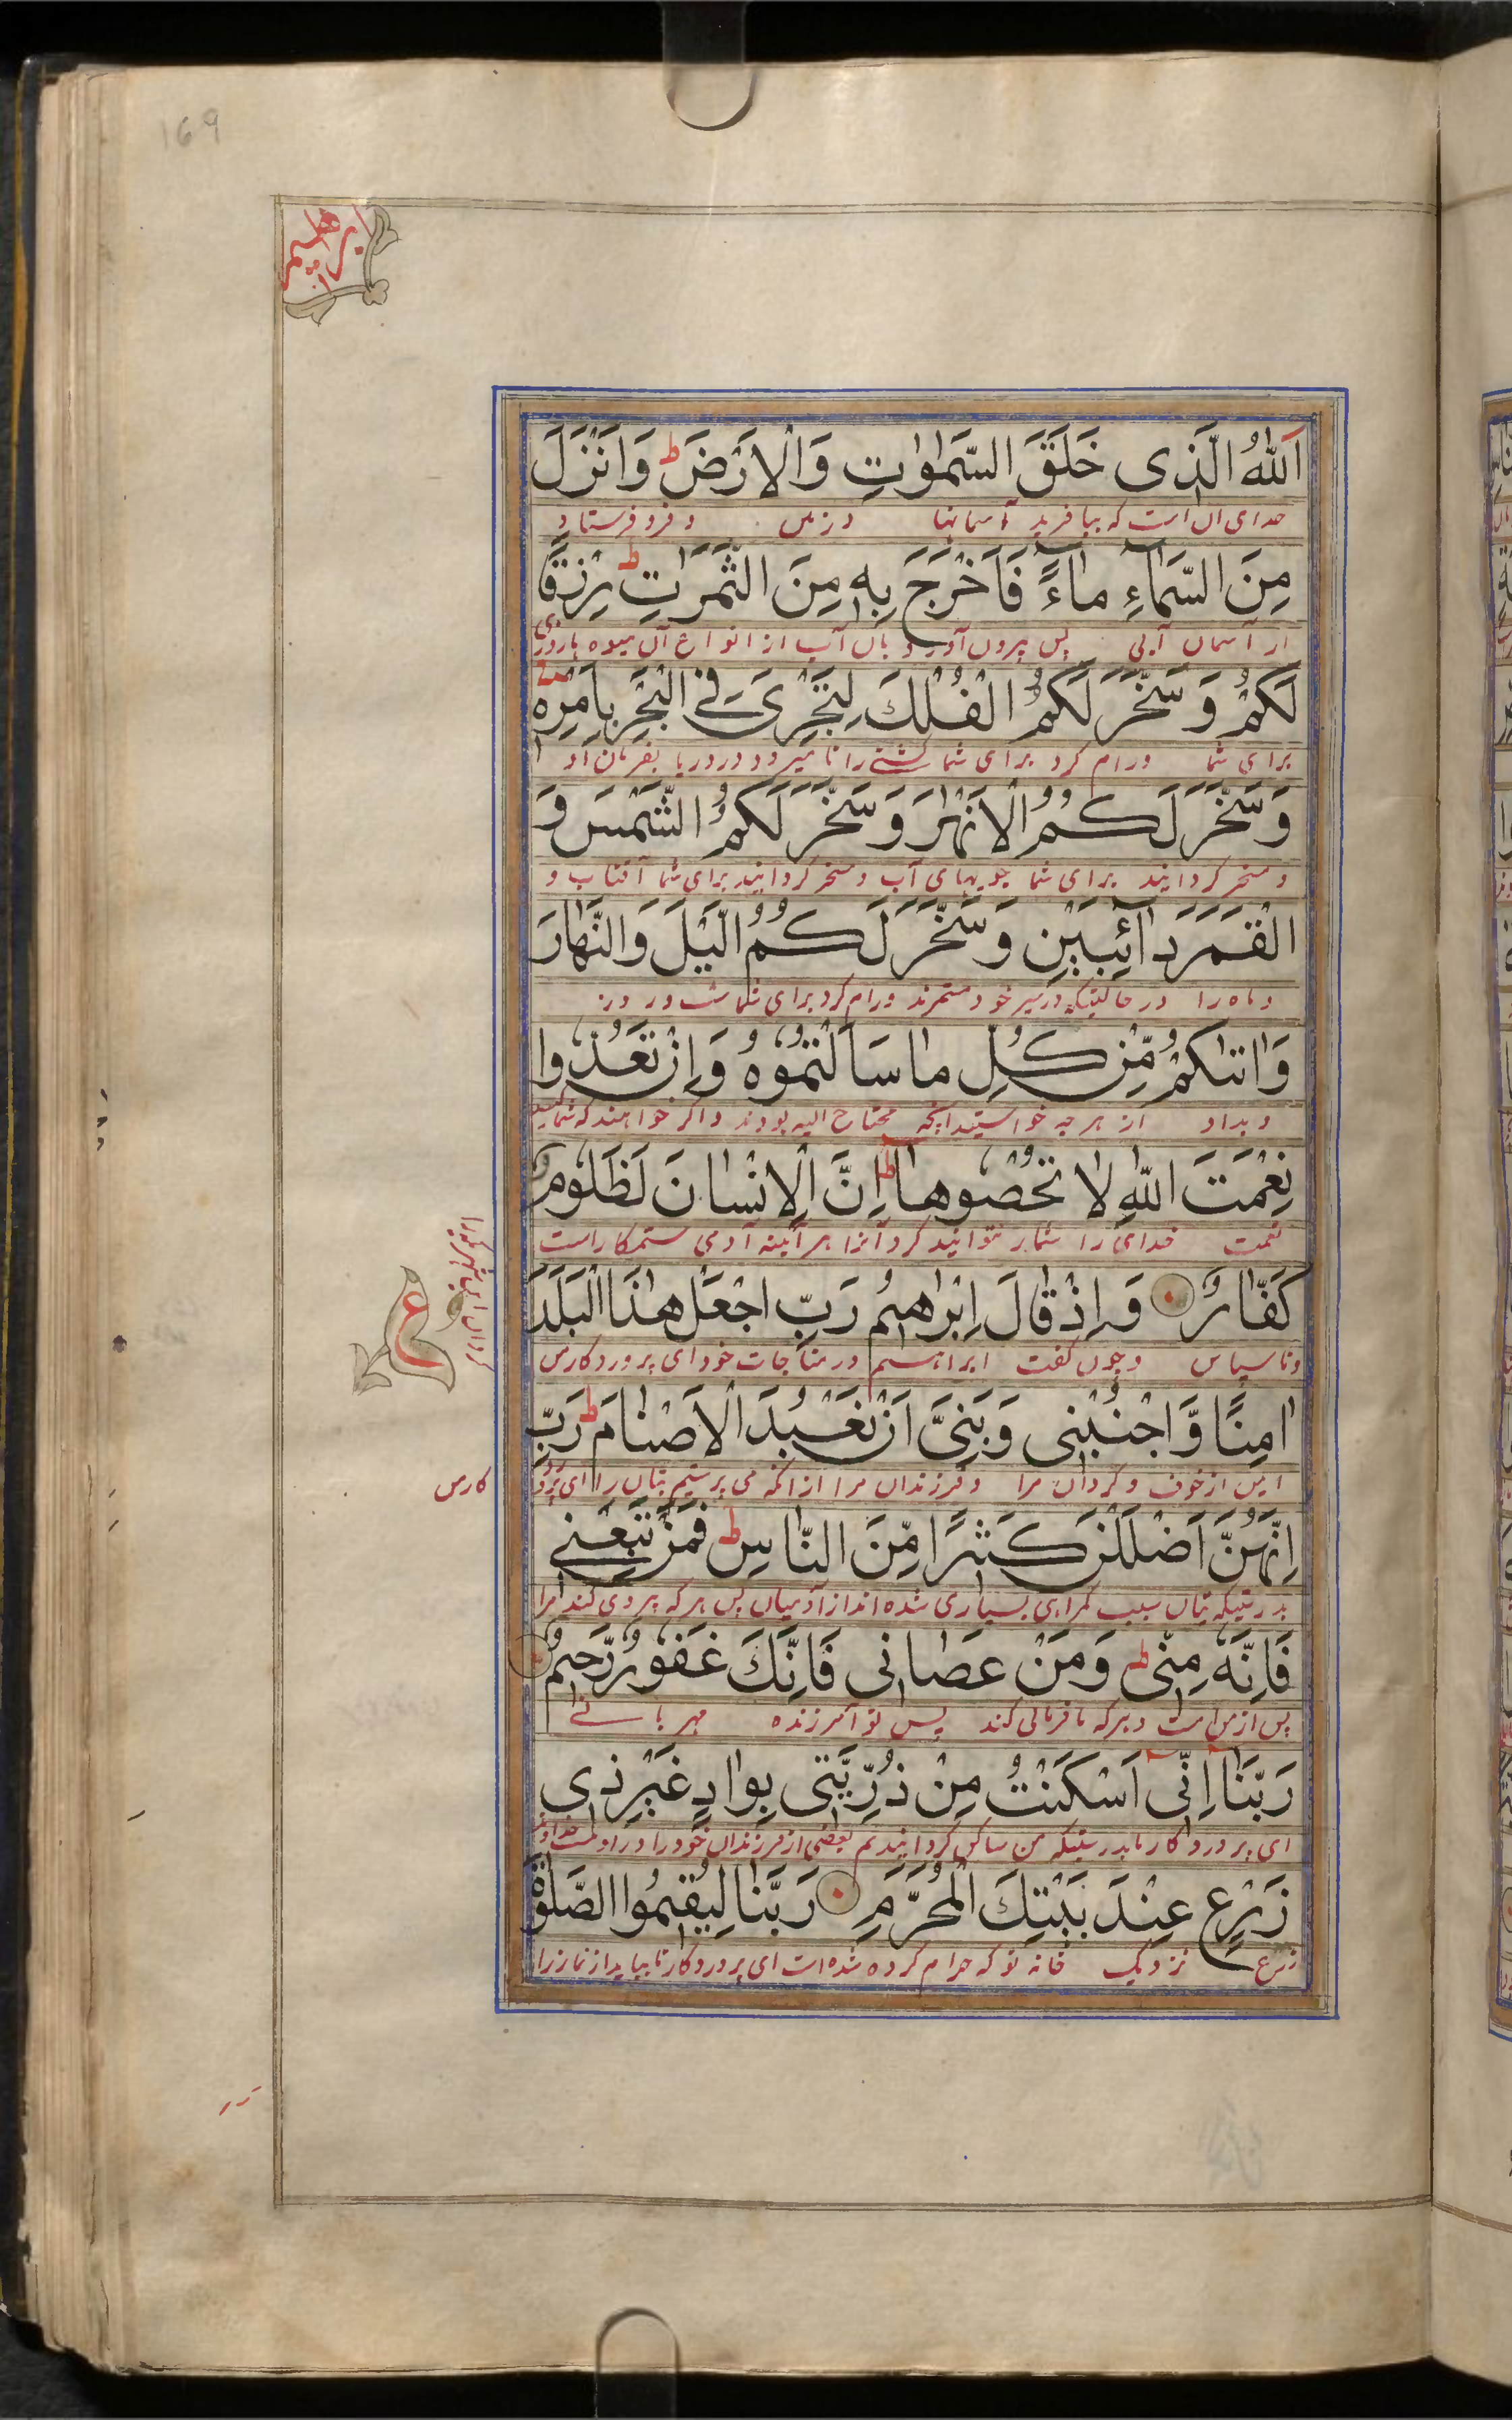 169
ابراهیم
اَللّٰهُ الَّذى خَلَقَ السَّمٰوٰتِ وَالْاَرْضَ ط وَاَنْزَلَ
خدای آن است که بیافرید آسمانها و زمین و فرو فرستاد
مِنَ السَّمٰاۤءِ مٰاۤءً فَاَخْرَجَ بِهٖ مِنَ الثَّمَرٰتِ ط رِزْقًا
از آسمان آبی پس بیرون آورد بآن آب از انواع آن میوه با روزی
لَكُمْ وَ سَخَّرَ لَكُمُ الْفُلْكَ لِتَجْرِىَ فِى الْبَحْرِ بِاَمْرِهٖ
برای شما و رام کرد برای شما کشتی را تا میرود در دریا بفرمان او
وَ سَخَّرَ لَكُمُ الْاَنْهٰرَ وَ سَخَّرَ لَكُمُ الشَّمْسَ وَ
و مسخر کردانید برای شما جویهای آب و مسخر کردانید برای شما آفتاب و
الْقَمَرَ دٰاۤئِبَيْنِ وَ سَخَّرَ لَكُمُ الَّيْلَ وَالنَّهٰارَ
و ماه را در حالتیکه در سیر خود مستمرند و رام کرد برای شما شب و روز
وَاٰتٰىكُمْ مِّنْ كُلِّ مٰا سَاَلْتُمُوْهُ وَاِنْ تَعُدُّوا
و بداد از هر چه خواستید آنچه محتاج الیه بودند و اکر خواهند که شما کنید
نِعْمَتَ اللّٰهِ لٰا تُحْصُوهٰا ط اِنَّ الْاِنْسٰانَ لَظَلُوْمٌ
نعمت خدای را شمار نتوانید کرد آنرا هر آینه آدمی ستمکار است
كَفّٰارٌ وَ اِذْ قٰالَ اِبْرٰهيمُ رَبِّ اجْعَلْ هٰذَا الْبَلَدَ
و ناسپاس و چون کفت ابراهیم در مناجات خود ای پروردکار من
ع
اٰمِنًا وَّ اجْنُبْنى وَ بَنِىَّ اَنْ نَعْبُدَ الْاَصْنٰامَ ط رَبِّ
ایمن از خوف و کردان مرا و فرزندان مرا از آنکه می پرستیم بتان را ای پرورد
کار من
اِنَّهُنَّ اَضْلَلْنَ كَثيرًا مِّنَ النّٰاسِ ط فَمَنْ تَبِعَنى
بدرستیکه بتان سبب کمراهی بسیاری شده اند از آدمیان پس هر که پیروی کند مرا
فَاِنَّهٗ مِنّى ط وَمَنْ عَصٰانى فَاِنَّكَ غَفُوْرٌ رَّحيمٌ
پس از من است و هر که نافرمانی کند پس تو آمرزنده مهربانی
رَبَّنٰاۤ اِنّىۤ اَسْكَنْتُ مِنْ ذُرِّيَّتى بِوٰادٍ غَيْرِ ذى
ای پروردکار ما بدرستیکه من ساکن کردانیدم بعضی از فرزندان خود را در
زَرْعٍ عِنْدَ بَيْتِكَ الْمُحَرَّمِ رَبَّنٰا لِيُقيمُوا الصَّلٰوةَ
زرع نزدیک خانه تو که حرام کرده شده است ای پروردکار تا بپا یدارند نماز را